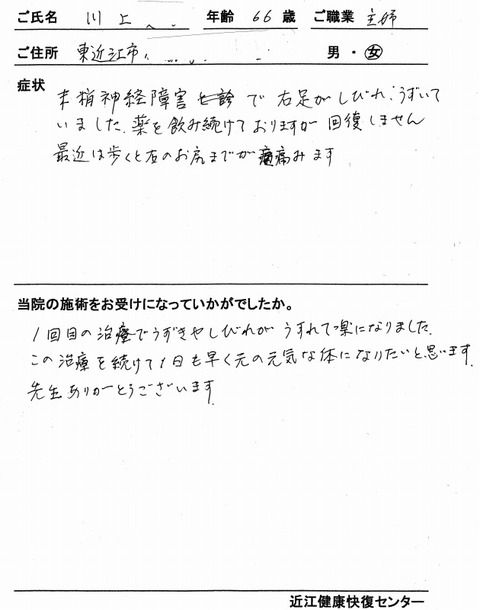 ご氏名 川上 年齢 66 歳 ご職業 主婦
ご住所 東近江市 男・女
症状
末梢神経障害と診で右足がしびれ、うずいて
いました、薬を飲み続けておりますが回復しません
最近は歩くと右のお尻までが痛みます
当院の施術をお受けになっていかがでしたか。
1回目の治療でうずきやしびれがうすれて楽になりました、
この治療を続けて1日も早く元の元気な体になりたいと思います、
先生ありがとうございます
近江健康快復センター